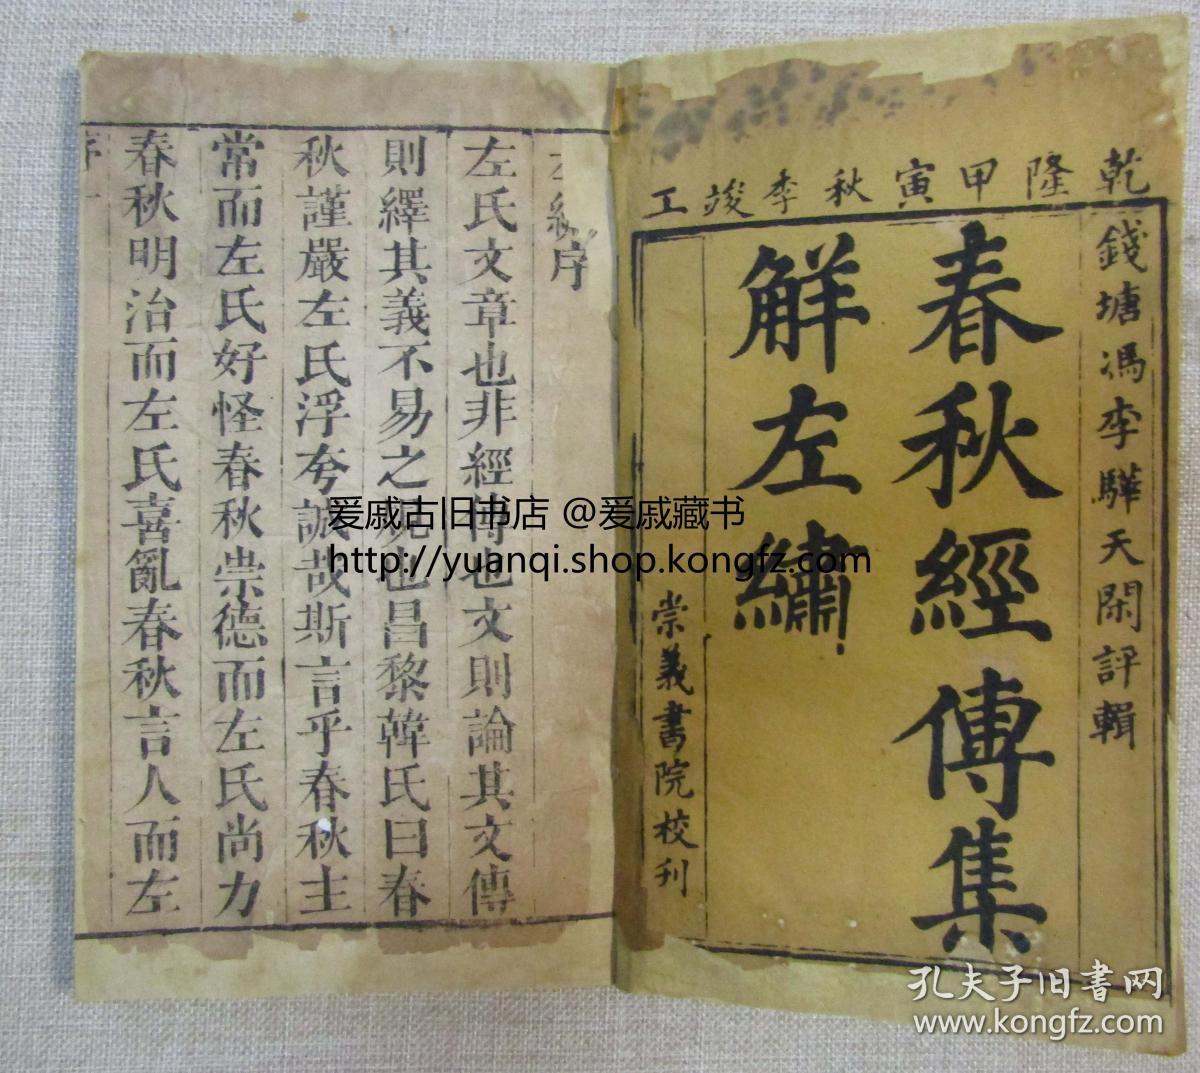 乾隆甲寅秋季竣工
錢塘馮李驊天閑評輯
春秋經傳集
解左繡
崇義書院校刊
序
左氏文章也非經傳也文則論其文傳
則繹其義不易之規也昌黎韓氏曰春
秋謹嚴左氏浮夸誠哉斯言乎春秋主
常而左氏好怪春秋崇德而左氏尚力
春秋明治而左氏喜亂春秋言人而左
爱戚古旧书店 @爱戚藏书
http://yuanqi.shop.kongfz.com
孔夫子旧書网
www.kongfz.com